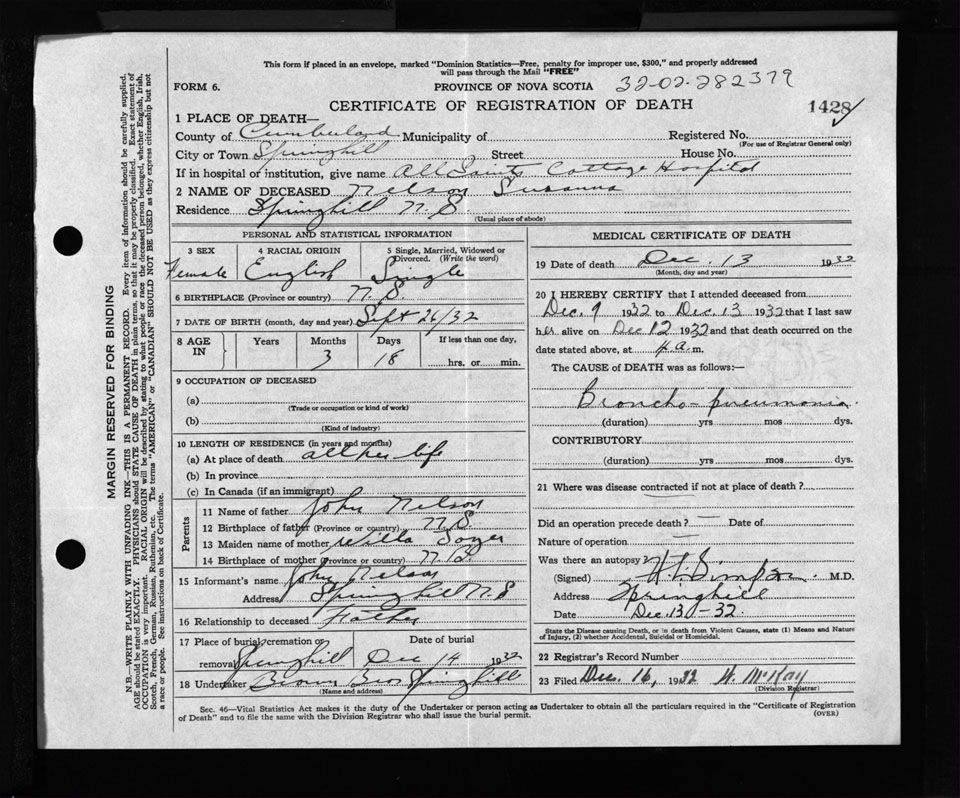 This form if placed in an envelope, marked "Dominion Statistics—Free, penalty for improper use, $300," and properly addressed
will pass through the Mail "FREE"
FORM 6. PROVINCE OF NOVA SCOTIA 32-02-282379
CERTIFICATE OF REGISTRATION OF DEATH 1428
1 PLACE OF DEATH—
County of Cumberland Municipality of Registered No.
(For use of Registrar General only)
City or Town Springhill Street House No.
If in hospital or institution, give name All Saints Cottage Hospital
2 NAME OF DECEASED Nelson Susanna
Residence Springhill N.S
(Usual place of abode)
PERSONAL AND STATISTICAL INFORMATION
3 SEX 4 RACIAL ORIGIN 5 Single, Married, Widowed or Divorced. (Write the word)
Female English Single
6 BIRTHPLACE (Province or country) N.S.
7 DATE OF BIRTH (month, day and year) Sept 26/32
8 AGE IN Years Months Days If less than one day,
3 18 hrs. or min.
9 OCCUPATION OF DECEASED
(a)
(Trade or occupation or kind of work)
(b)
(Kind of industry)
10 LENGTH OF RESIDENCE (in years and months)
(a) At place of death all her life
(b) In province
(c) In Canada (if an immigrant)
Parents
11 Name of father John Nelson
12 Birthplace of father (Province or country) N.S
13 Maiden name of mother Willa
14 Birthplace of mother (Province or country)
15 Informant's name John Nelson
Address Springhill N.S
16 Relationship to deceased Father
17 Place of burial, cremation or Date of burial
removal Springhill Dec 14 1932
18 Undertaker Brown Bros Springhill
(Name and address)
MEDICAL CERTIFICATE OF DEATH
19 Date of death Dec. 13 1932
(Month, day and year)
20 I HEREBY CERTIFY that I attended deceased from
Dec. 9 1932 to Dec 13 1932 that I last saw
her alive on Dec 12 1932 and that death occurred on
the date stated above, at 4 a.m.
The CAUSE of DEATH was as follows:—
Broncho-pneumonia.
(duration) yrs mos dys.
CONTRIBUTORY
(duration) yrs mos dys.
21 Where was disease contracted if not at place of death?
Did an operation precede death? — Date of
Nature of operation —
Was there an autopsy?
(Signed) Simpson M.D.
Address Springhill
Date Dec. 13 -32.
State the Disease causing Death, or in death from Violent Causes, state (1) Means and Nature
of Injury, (2) whether Accidental, Suicidal or Homicidal.
22 Registrar's Record Number
23 Filed Dec. 16, 1932 McKay
(Division Registrar)
Sec. 46—Vital Statistics Act makes it the duty of the Undertaker or person acting as Undertaker to obtain all the particulars required in the "Certificate of Registration
of Death" and to file the same with the Division Registrar who shall issue the burial permit.
(OVER)
MARGIN RESERVED FOR BINDING
N.B.—WRITE PLAINLY WITH UNFADING INK—THIS IS A PERMANENT RECORD. Every item of information should be carefully supplied.
AGE should be stated EXACTLY. PHYSICIANS should STATE CAUSE OF DEATH in plain terms, so that it may be properly classified. Exact statement of
OCCUPATION is very important. RACIAL ORIGIN will be described by stating to what people or race the deceased person belonged, whether English, Irish,
Scotch, French, German, Russian, Ruthenian, etc. The terms "AMERICAN" or "CANADIAN" SHOULD NOT BE USED as they express citizenship but not
a race or people. See instructions on back of Certificate.